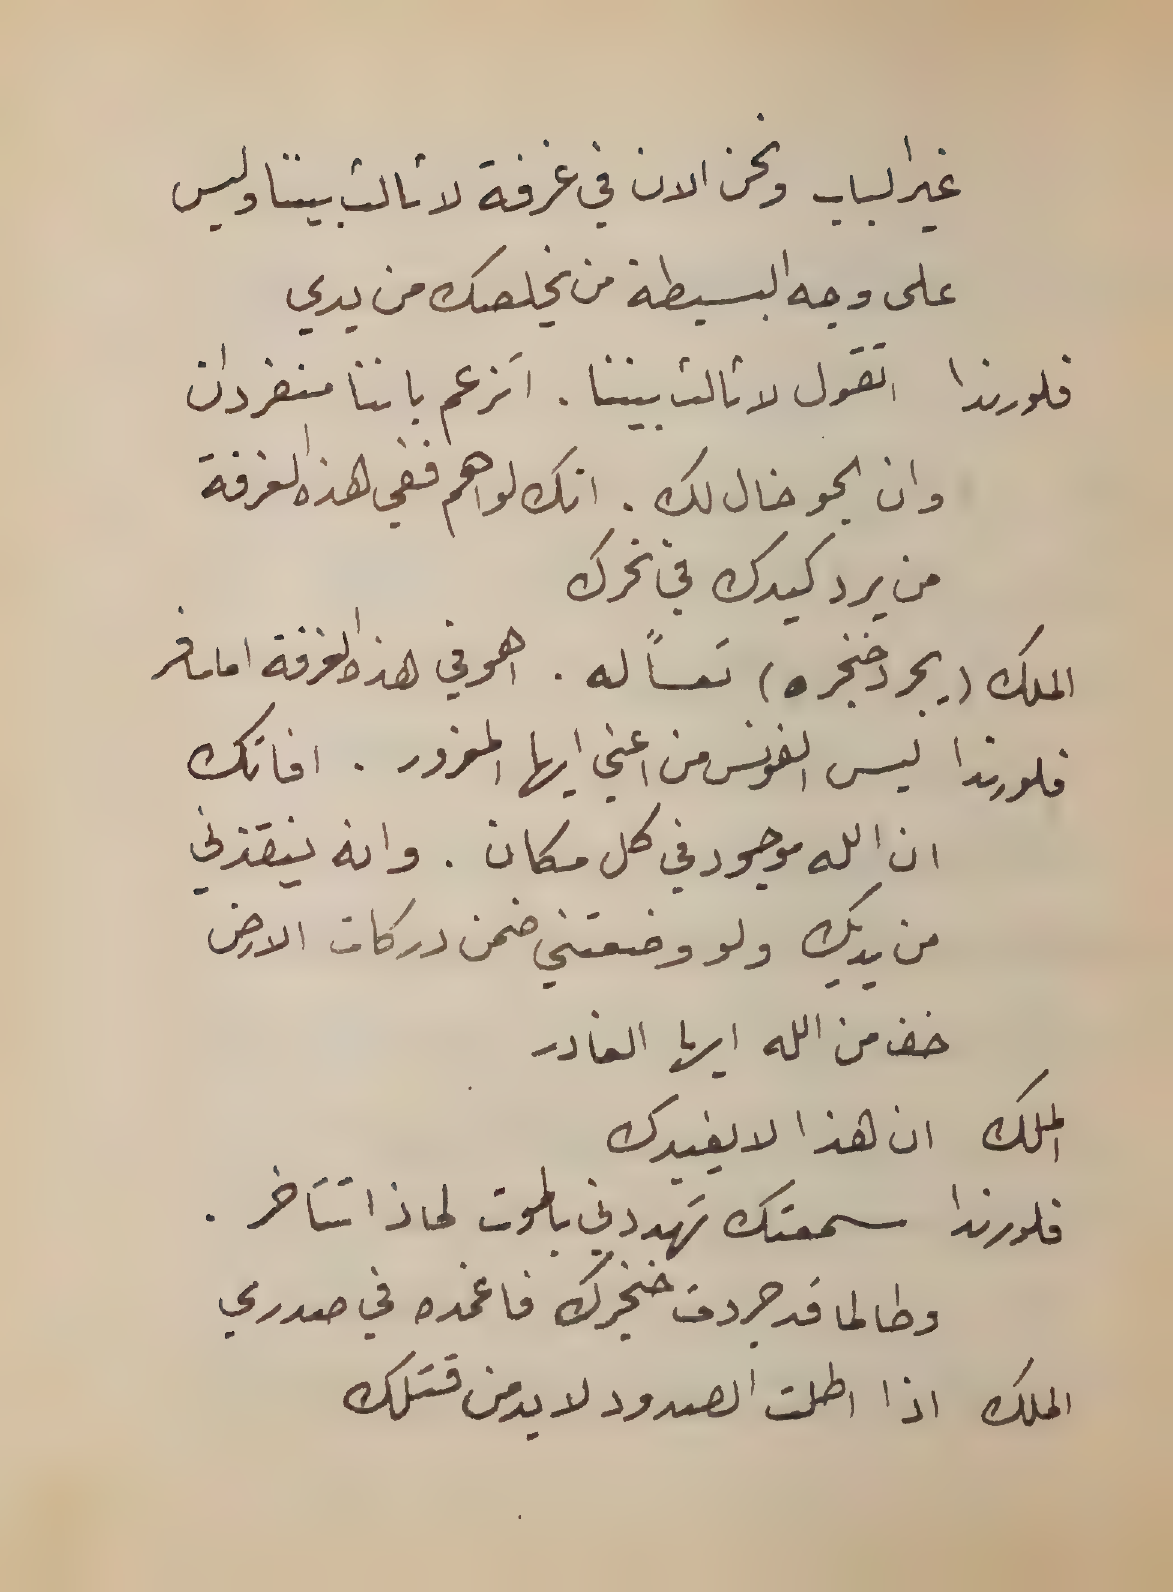 غير الباب ونحن الان في غرفة لا ثالث بيننا وليس
على وجه البسيطة من يخلصك من يدي
فلورندا اتقول لا ثالث بيننا . اتزعم باننا منفردان
وان الجو خال لك . انك لواهم ففي هذه الغرفة
من يرد كيدك في نحرك
الملك (يجرد خنجره) تعساً له . اهو في هذه الغرفة ام سافر
فلورندا ليس الفونس من اعني ايها المغرور . افاتك
ان الله موجود في كل مكان . وانه ينقذني
من يديك ولو وضعتني ضمن دركات الارض
خف من الله ايها الغادر
الملك ان هذا لا يفيدك
فلورندا سمعتك تهددني بالموت لماذا تتأخر .
وطالما قد جردت خنجرك فاغمده في صدري
الملك اذا اطلت الصدود لا بد من قتلك